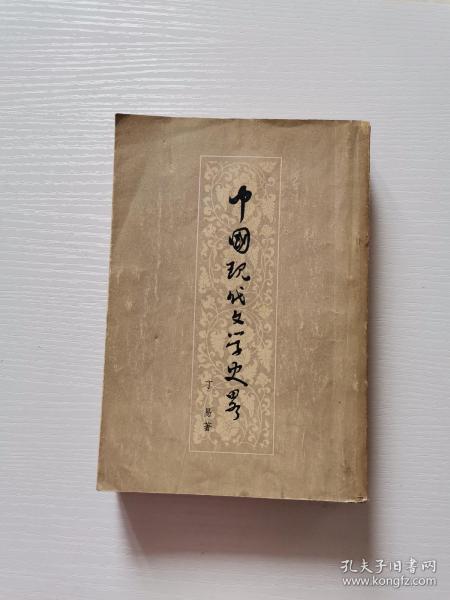 中國现代文学史畧
丁易著
孔夫子旧书网
www.kongfz.com